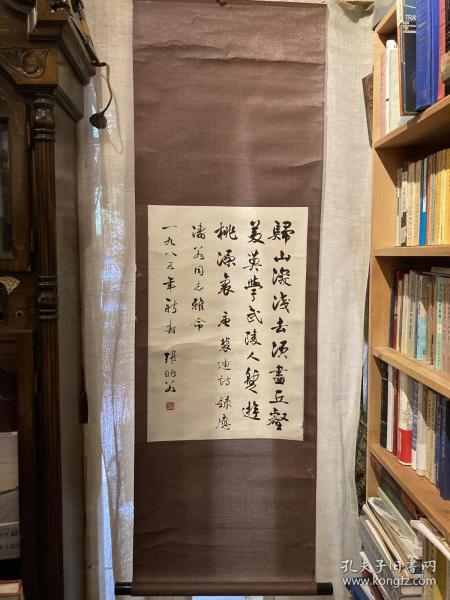 歸山深淺去須盡丘壑
美莫學武陵人暫遊
桃源裏 唐裴迪詩録應
潘同志雅命
一九八三年 張
孔夫子旧书网
www.kongfz.com